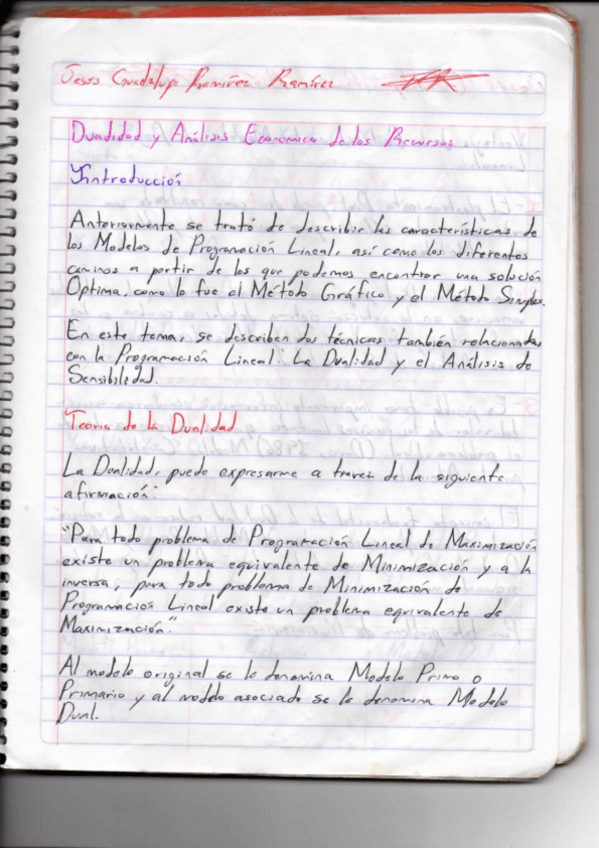 Jesus Guadalupe Ramirez Ramírez
Dualidad y Análisis Economico de los Recursos
Introducción
Anteriormente se trató de describir las características de
los Modelos de Programación Lineal, así como los diferentes
caminos a partir de los que podemos encontrar una solución
Optima, como lo fue el Método Gráfico y el Método Simplex.
En este tema, se describen dos técnicas también relacionadas
con la Programación Lineal: La Dualidad y el Análisis de
Sensibilidad.
Teoria de la Dualidad
La Dualidad, puede expresarme a travez de la siguiente
afirmación:
"Para todo problema de Programación Lineal de Maximización
existe un problema equivalente de Minimización y a la
inversa, para todo problema de Minimización de
Programación Lineal existe un problema equivalente de
Maximización"
Al modelo original se le denomina Modelo Primo o
Primario y al modelo asociado se le denomina Modelo
Dual.